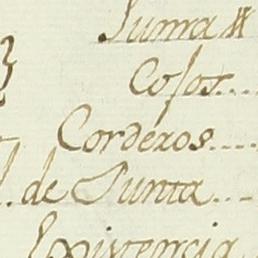 Suma #
Cojos....
Corderos....
de Punta....
Existencia